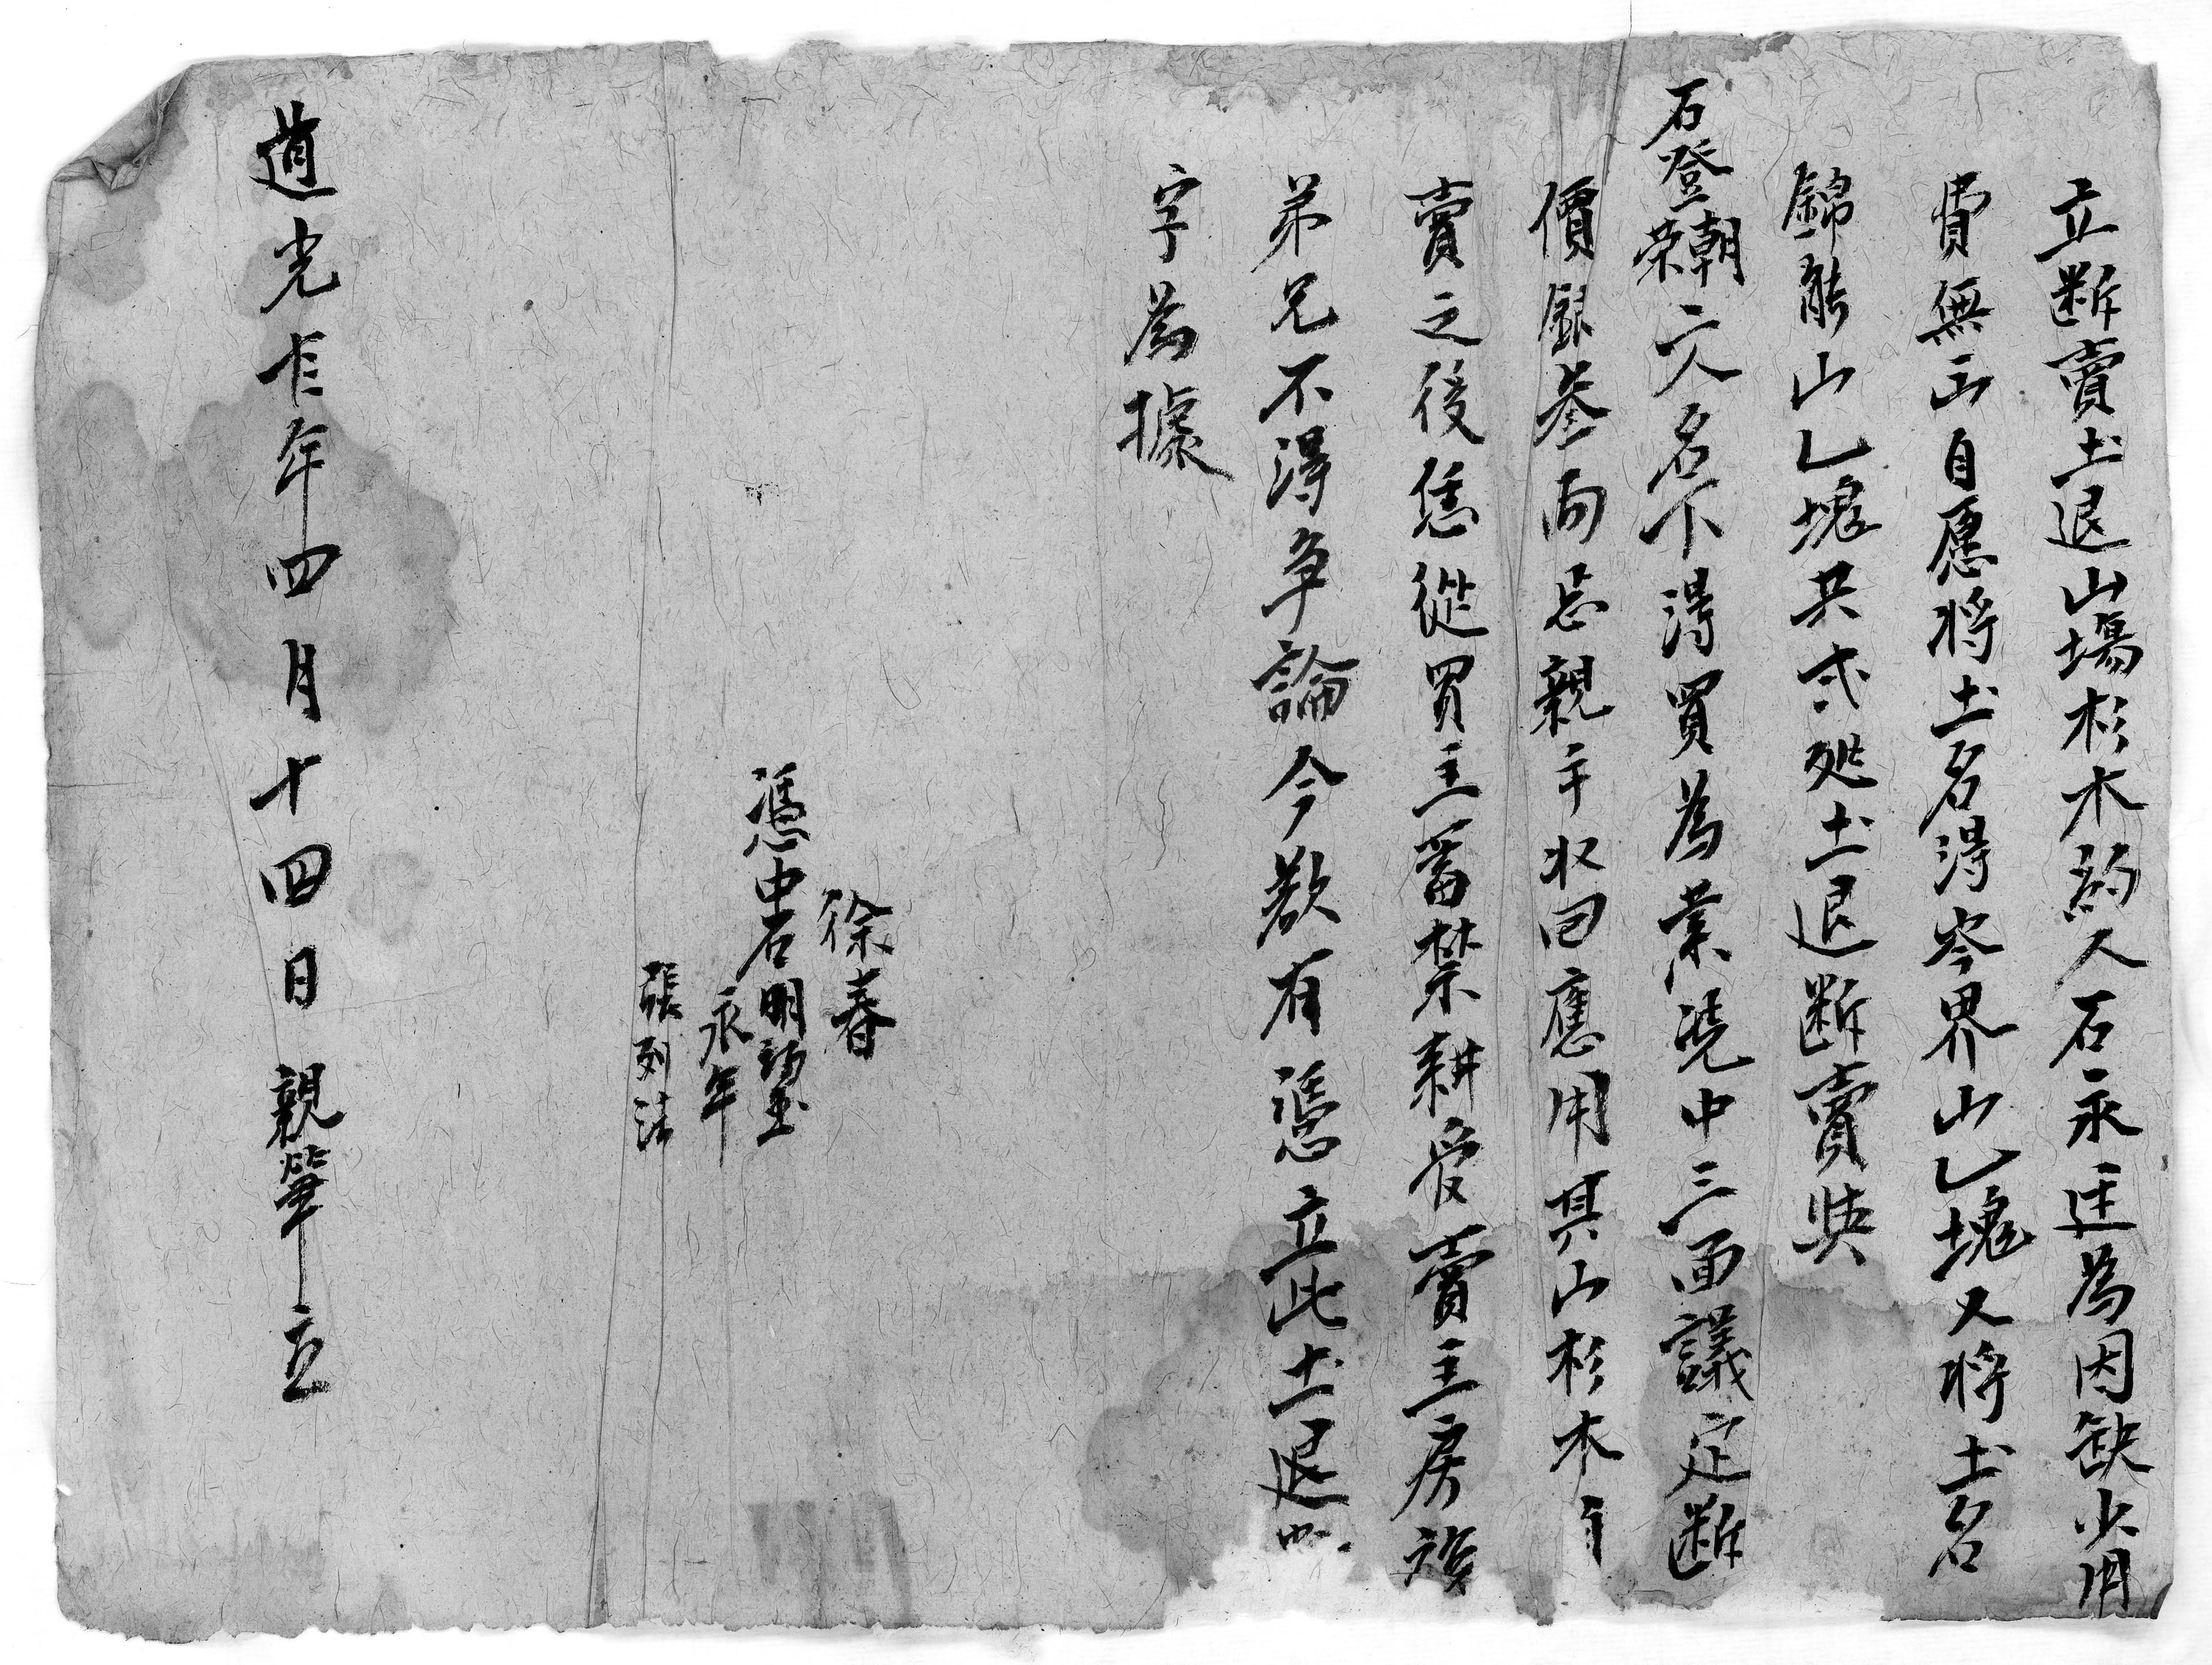 立断賣土退山塲杉木約人石永廷為因缺少用
費無出自愿将土名淂岑界山乙塊又将土名
錦能山乙塊共弍处土退断賣與
石登朝榮二人名下淂買為業凴中三面議定断
價銀叁両忘親手収回應用其山杉木
賣之後恁從買主蓄禁耕受賣主房族
弟兄不得争論今欲有憑立此土退
字為據
徐春
憑中石明望
永年
張列
道光年四月十四日親筆立